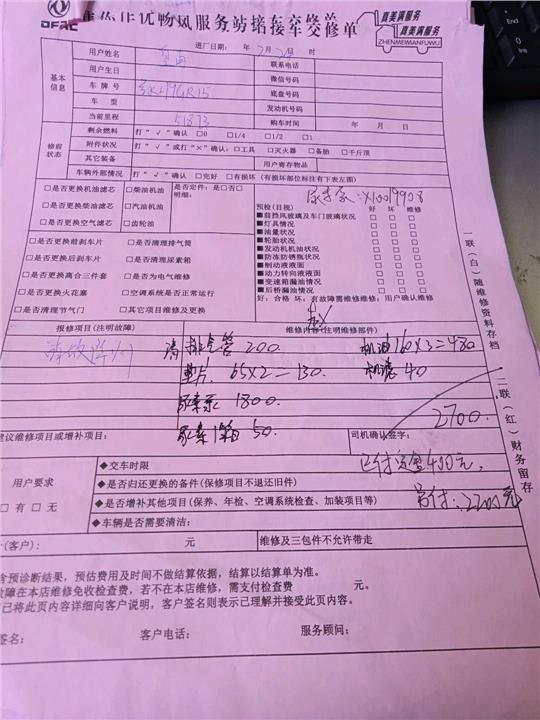 DFAC
畅风服务站接车交修单
真美满服务
ZHENMEIMANFUWU
用户姓名
进厂日期: 年 2月 日 时
联系电话
基本信息
用户生日
微信号码
车牌号
底盘号码
车 型
发动机号码
当前里程
51873
购车时间 年 月 日
修前状态
剩余燃料 打"√"确认 □0 □1/4 □1/2 □1
附件状况 打"√"或打"×"确认:□工具 □灭火器 □备胎 □千斤顶
其它装备
用户寄存物品
车辆外部情况 打"√"确认 □完好 □有损坏(有损坏部位标注有下表左图)
□是否更换机油滤芯 □柴油机油
是否定件: 是□否□
明细:
□是否更换柴油滤芯 □汽油机油
□是否更换空气滤芯 □齿轮油
□是否更换前刹车片 □是否清理排气筒
□是否更换后刹车片 □是否清理尿素箱
□是否更换离合三件套 □是否为电气维修
□是否更换火花塞 □空调系统是否正常运行
□是否清理节气门 □其它项目维修及更换
尿素泵:X10019908
预检(目视) 好 坏 维修
■前挡风玻璃及车门玻璃状况 □ □ □
■灯具情况 □ □ □
■油量状况 □ □ □
■轮胎状况 □ □ □
■发动机机油状况 □ □ □
■防冻防锈瓶状况 □ □ □
■制动液液面 □ □ □
■动力转向液液面 □ □ □
■变速箱漏油情况 □ □ □
■后桥漏油情况 □ □ □
好:合格 坏:有故障需维修维修:用户确认维修
报修项目(注明故障)
维修内容(注明维修部件)
清排气管 200
机油 160×3=480
垫片 65×2=130
机滤 40
尿素泵 1800
尿素1箱 50
2700
建议维修项目或增补项目:
司机确认签字:
已付定金400元
用户要求
□有 □无
◆交车时限
◆是否归还更换的条件(保修项目不退还旧件)
◆是否增补其他项目(保养、年检、空调系统检查、加装项目等)
◆车辆是否需要清洁:
付:2200元
(客户): 元
维修及三包件不允许带走
含预诊断结果,预估费用及时间不做结算依据,结算以结算单为准。
故障在本店维修免收检查费,若不在本店维修,需支付检查费 元。
已将此页内容详细向客户说明,客户签名则表示已理解并接受此页内容。
签名: 客户电话: 服务顾问:
一联(白)随维修资料存档
二联(红)财务留存